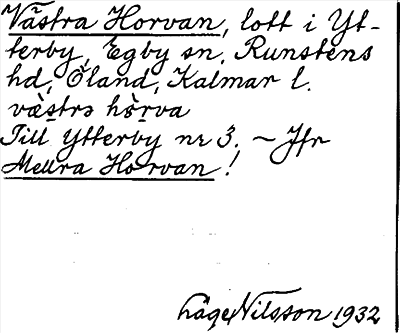 Västra Horvan, lott i Yt-
terby, Egby sn, Runstens
hd, Öland, Kalmar l.
væ̀strə hòrva
Till Ytterby nr 3. ~ Jfr
Mellra Horvan!
Nilsson 1932